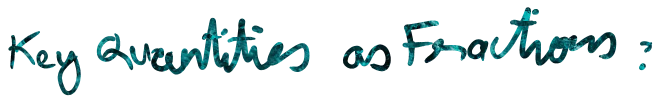 Key Quantities as Fractions :